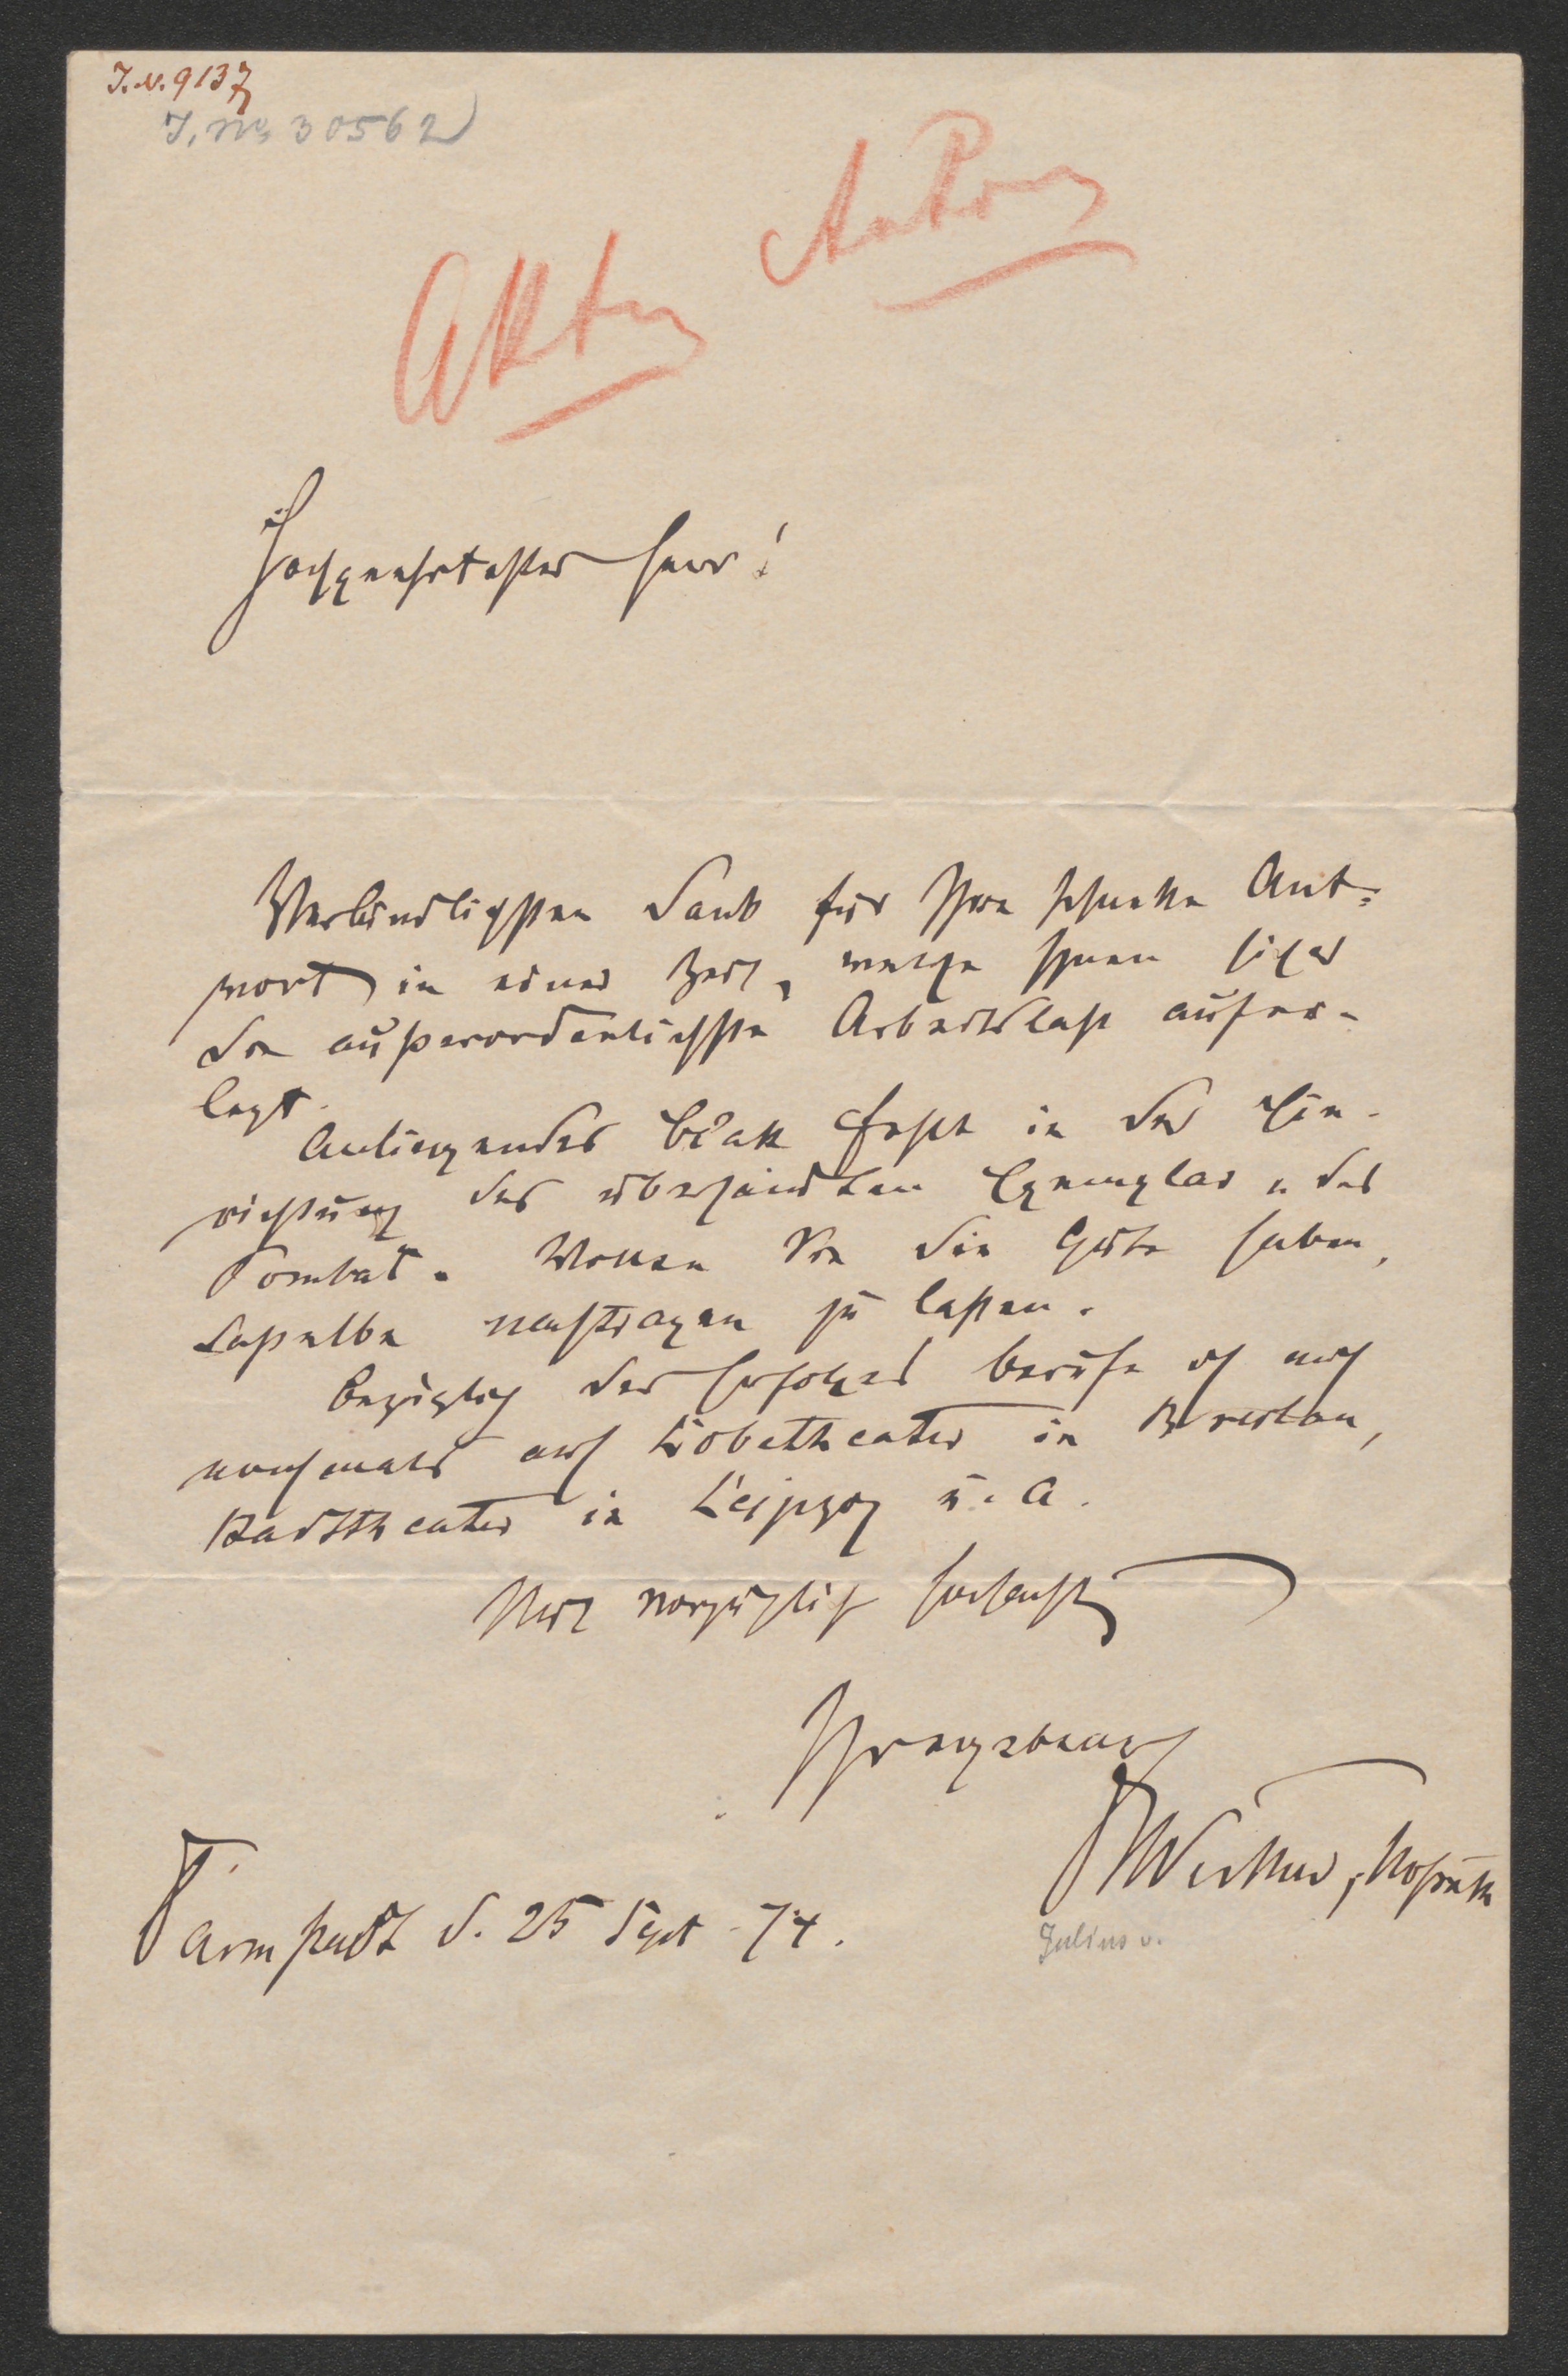 I.N. 9137
I. No 30562
Akten
Hochgeehrtester Herr!
Verbindlichsten Dank für Ihre schnelle Ant-
wort in einer Zeit, welche Ihnen sicher
die außerordentlichste Arbeitslast aufer-
legt.
Anliegendes Blatt fehlt in der Ein-
richtung des übersandten Exemplar's des
Pombal. Wollen Sie die Güte haben,
dasselbe nachtragen zu lassen.
Bezüglich des Erfolges berufe ich mich
nochmals auf Lobetheater in Breslau,
Stadttheater in Leipzig u. A.
Mit vorzüglicher Hochacht
Ihr ergebener
Werther, Hofrath
Julius v.
Darmstadt d. 25 Sept 74.